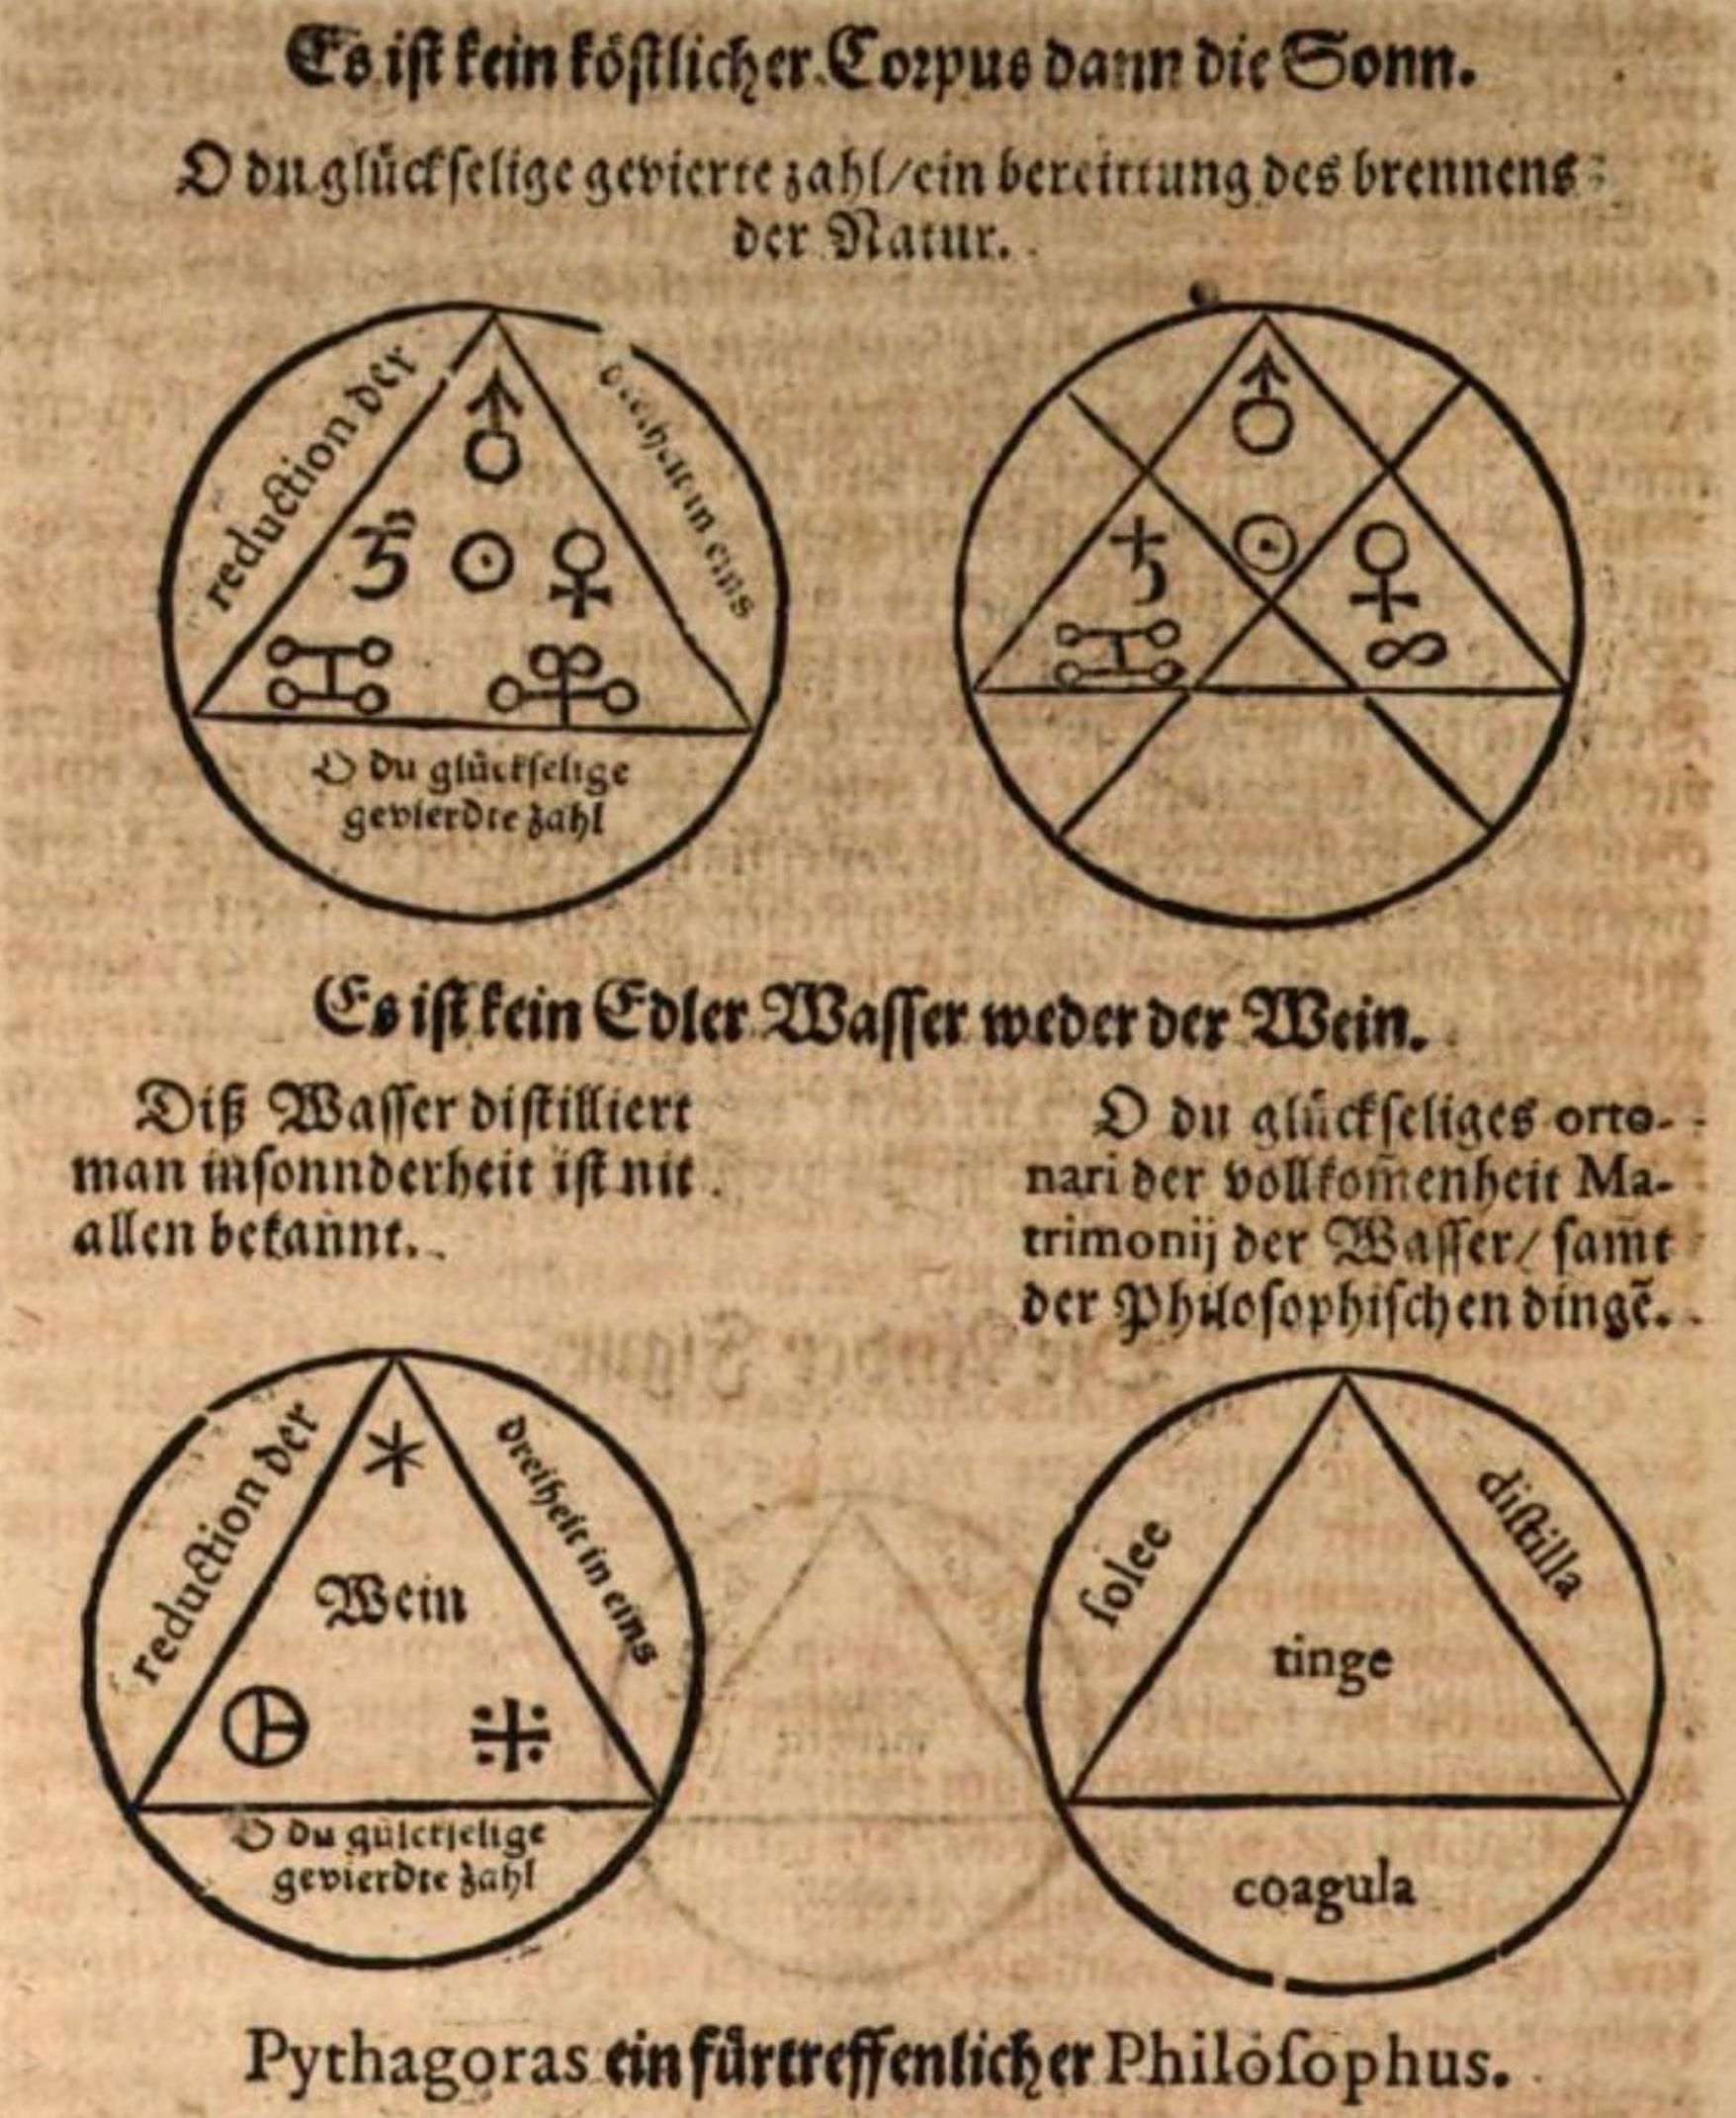 Es iſt kein köſtlicher Corpus dann die Sonn.
O du glückſelige gevierte zahl/ein bereittung des brennens
der Natur.
reduction der
in eins
O du glückſelige
gevierdte zahl
Es iſt kein Edler Waſſer weder der Wein.
Diß Waſſer diſtilliert
man inſonnderheit iſt nit
allen bekannt.
O du glückſeliges otto-
nari der vollkom̃enheit Ma-
trimonij der Waſſer/ ſam̃t
der Philoſophiſchen dingẽ.
reduction der
dreiheit in eins
Wein
O du gülckſelige
gevierdte zahl
ſolee
diſtilla
tinge
coagula
Pythagoras ein fürtreffenlicher Philoſophus.